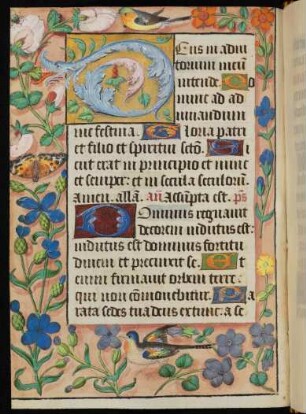 Deus in adiu
torium meū
intende. Do
mine ad ad
iuuandum
me festina. Gloria patri
et filio et spiritui scto. Si
cut erat in principio et nunc
et semper: et in secula seculorū
amen. allā. an Assūpta est. ps
Dominus regnauit
decorem indutus est:
indutus est dominus fortitu
dinem et precinxit se. et
enim firmauit orbem terre:
qui non cōmouebitur. Pa
rata sedes tua deus ex tunc: a se